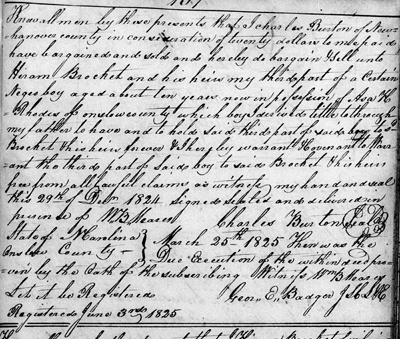 Know all men by these presents that I Charles Burton of New
hanover county in consideration of twenty dollars to me paid
have bargained and sold and hereby do bargain & sell unto
Hiram Brochet and his heirs my third part of a certain
Negro boy aged about ten years now in possession of Asa H
Rhodes of onslow county which boy I derived title to through
my father to have and to hold said third part of said boy to sd
Brochet & his heirs forever & hereby warrant & covenant to War-
rant the third part of said boy to said Brochet & his heirs
free from all lawful claims as witness my hand and seal
this 29th of Decr 1824 signed sealed and delivered in
presence of WB Meares Charles Burton Seal
State of N Carolina
Onslow County
March 25th 1825 Then was the
Due Execution of the within deed pro-
ven by the Oath of the subscribing Witness Wm B Meares
Let it be Registered Geor. E. Badger J S L &
Registered June 3rd 1825